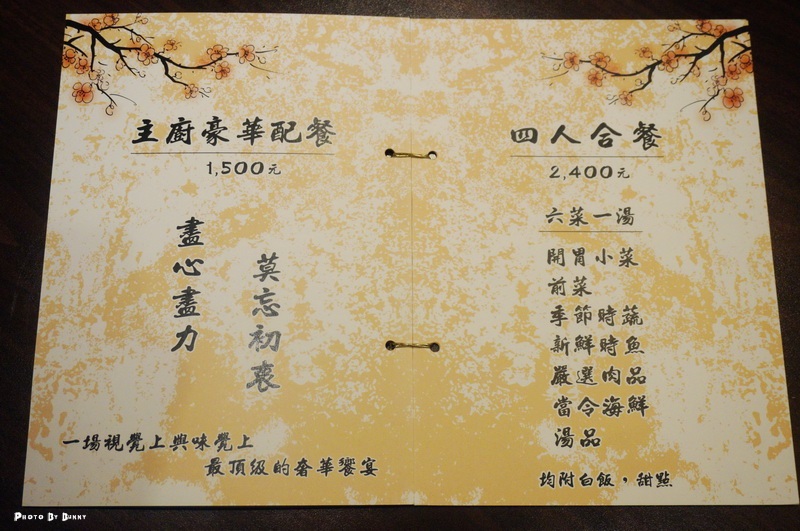 主廚豪華配餐
1,500元
莫忘初衷
盡心盡力
一場視覺上與味覺上
最頂級的奢華饗宴
四人合餐
2,400元
六菜一湯
開胃小菜
前菜
季節時蔬
新鮮時魚
嚴選肉品
當令海鮮
湯品
均附白飯，甜點
PHOTO BY BUNNY